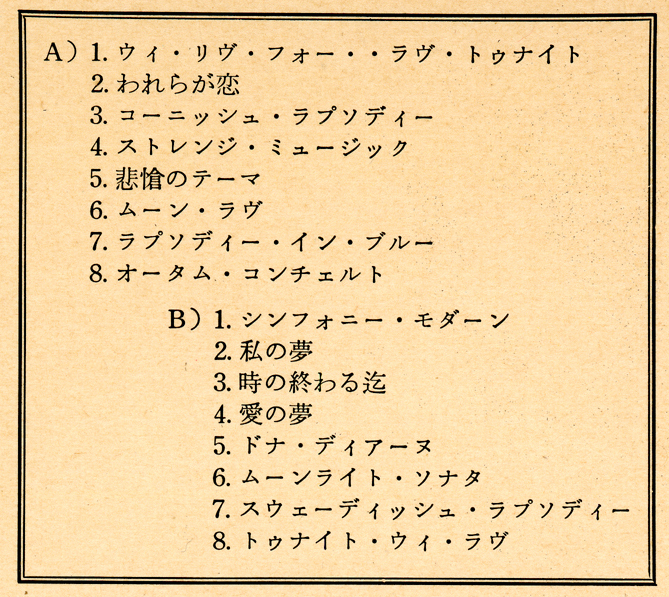 A) 1. ウィ・リヴ・フォー・・ラヴ・トゥナイト
2. われらが恋
3. コーニッシュ・ラプソディー
4. ストレンジ・ミュージック
5. 悲愴のテーマ
6. ムーン・ラヴ
7. ラプソディー・イン・ブルー
8. オータム・コンチェルト
B) 1. シンフォニー・モダーン
2. 私の夢
3. 時の終わる迄
4. 愛の夢
5. ドナ・ディアーヌ
6. ムーンライト・ソナタ
7. スウェーディッシュ・ラプソディー
8. トゥナイト・ウィ・ラヴ